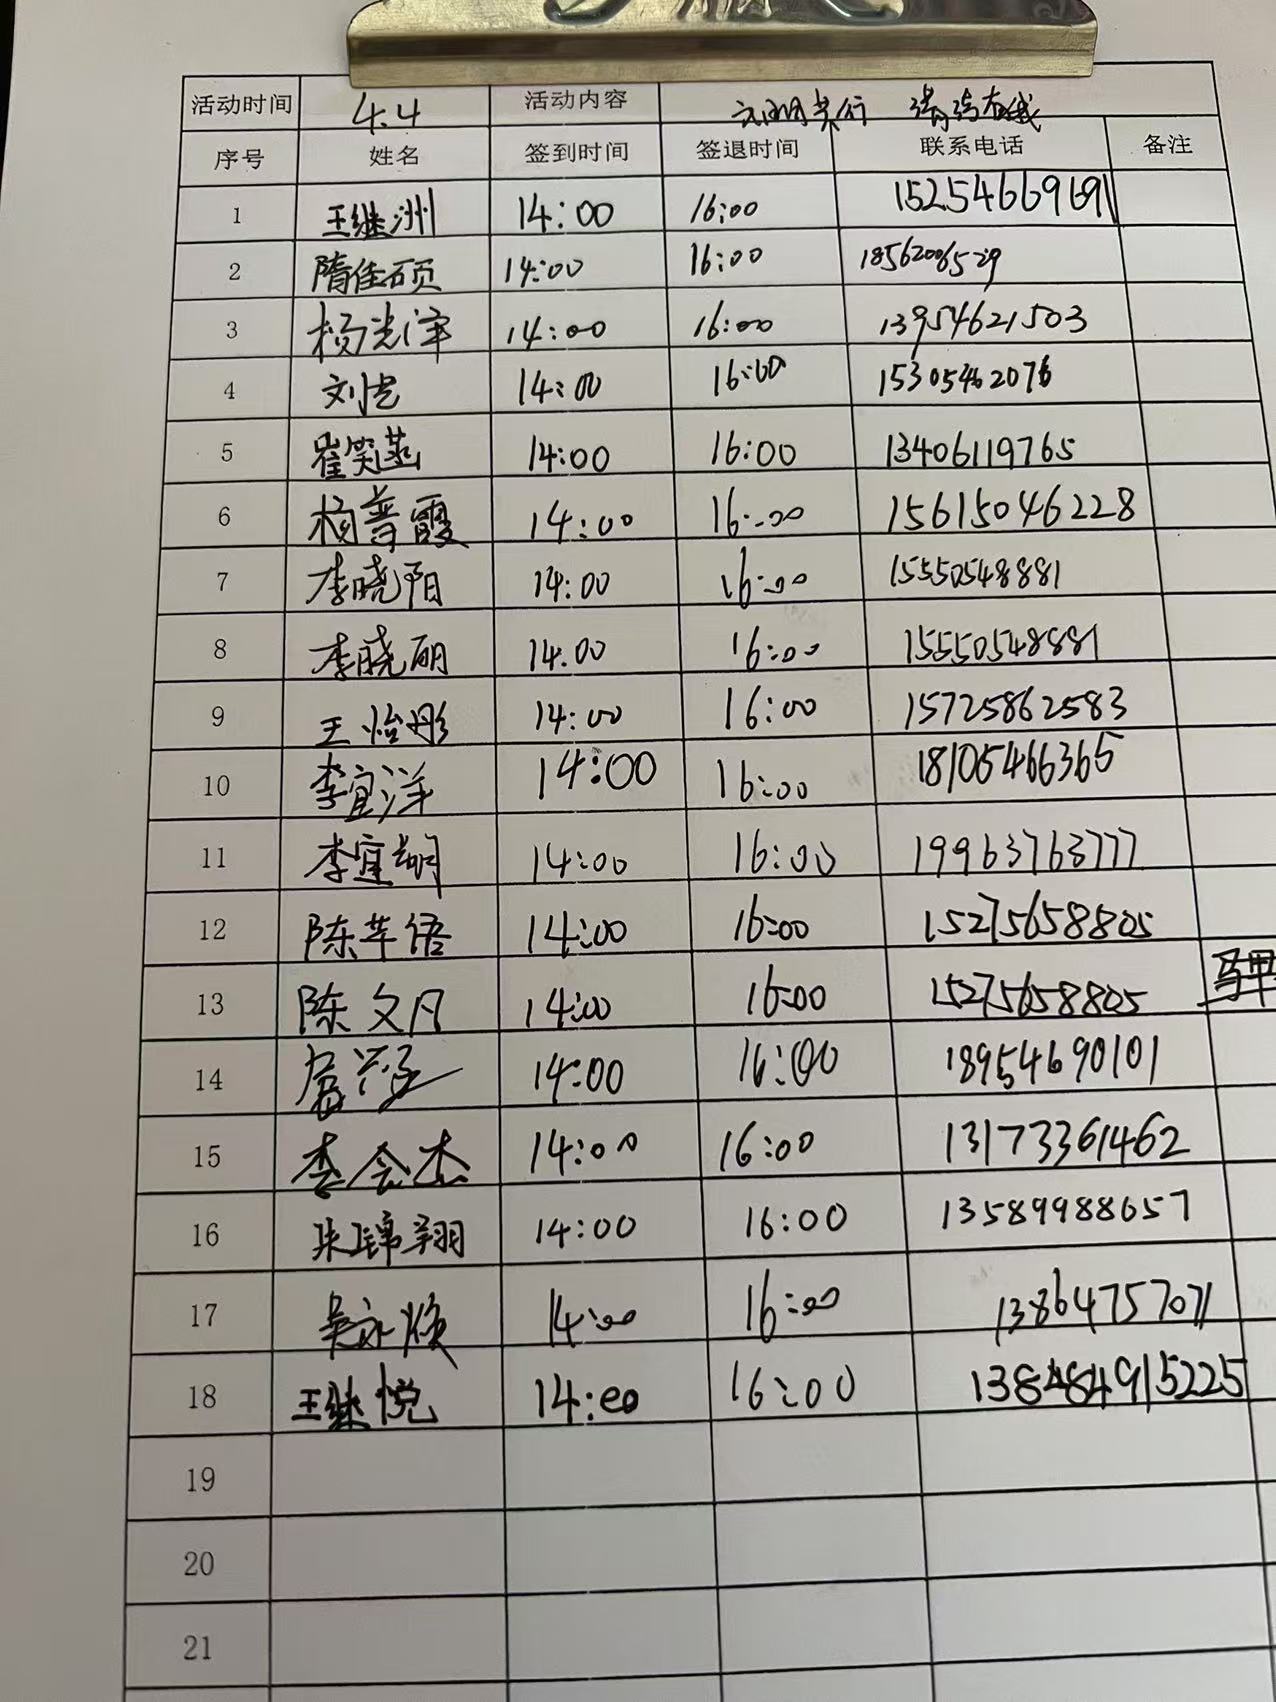 活动时间 4.4 活动内容 文明共行
序号 姓名 签到时间 签退时间 联系电话 备注
1 王继洲 14:00 16:00 15254669691
2 隋佳硕 14:00 16:00 18562006529
3 杨光泽 14:00 16:00 13954621503
4 刘光 14:00 16:00 15305462076
5 崔笑菡 14:00 16:00 13406119765
6 杨普霞 14:00 16:00 15615046228
7 李晓阳 14:00 16:00 15550548881
8 李晓丽 14:00 16:00 15550548881
9 王怡彤 14:00 16:00 15725862583
10 李宜洋 14:00 16:00 18105466365
11 李宜朔 14:00 16:00 19963763777
12 陈芊语 14:00 16:00 15275658805
13 陈文凡 14:00 16:00 15275658805 马甲
14 14:00 16:00 18954690101
15 李会杰 14:00 16:00 13173361462
16 朱锦翔 14:00 16:00 13589988657
17 吴永焕 14:00 16:00 13864757071
18 王继悦 14:00 16:00
19
20
21